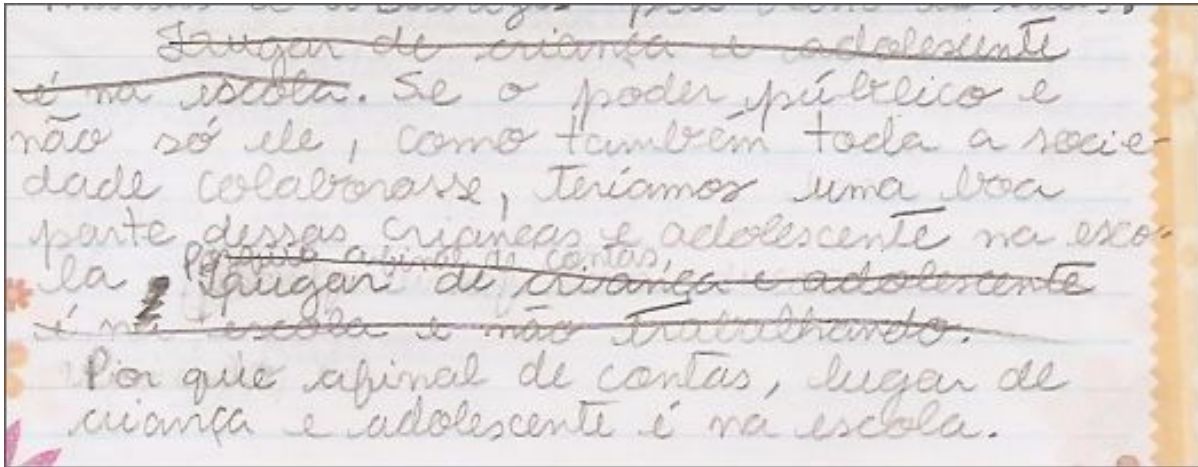 Laugar de criança e adolescente
é na escola. Se o poder público e
não só ele, como também toda a socie-
dade colaborasse, teríamos uma boa
parte dessas crianças e adolescente na esco-
la
Por que afinal de contas,
Laugar de criança e adolescente
é na escola e não trabalhando.
Por que afinal de contas, lugar de
criança e adolescente é na escola.